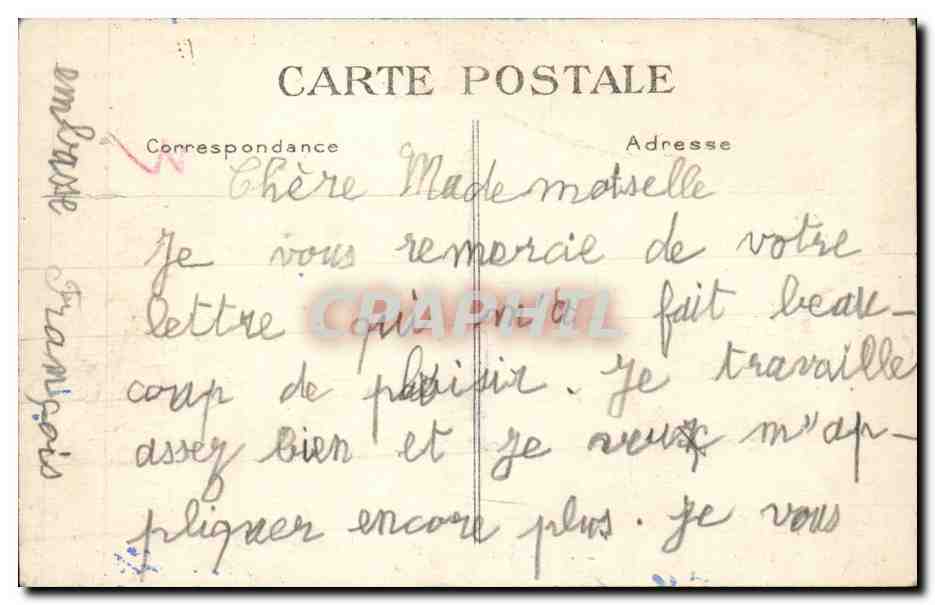 CARTE POSTALE
Correspondance
Adresse
Chère Mademoiselle
Je vous remercie de votre
lettre qui m'a fait beau-
coup de plaisir. Je travaille
assez bien et je veux m'ap-
pliquer encore plus. Je vous
embrasse François
CPAPHIL